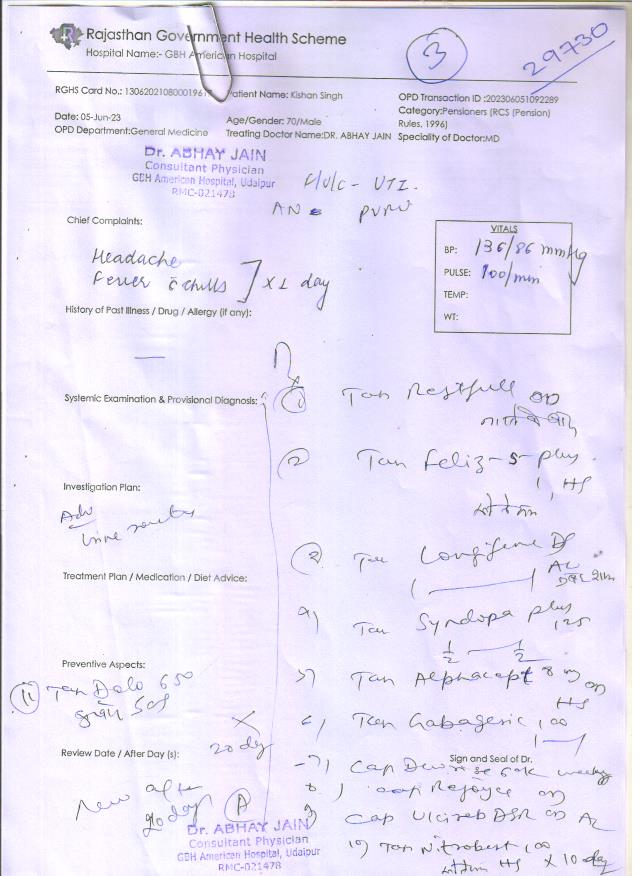 Rajasthan Government Health Scheme
Hospital Name:- GBH American Hospital
3
29730
RGHS Card No.: 1306202108000196
Patient Name: Kishan Singh
OPD Transaction ID :202306051092289
Date: 05-Jun-23
Age/Gender: 70/Male
Category:Pensioners (RCS (Pension) Rules, 1996)
OPD Department:General Medicine
Treating Doctor Name:DR. ABHAY JAIN
Speciality of Doctor:MD
Dr. ABHAY JAIN
Consultant Physician
GBH American Hospital, Udaipur
RMC-021478
UTI
Chief Complaints:
Headache
Fever c chills ] x 1 day
VITALS
BP: 136/86 mmHg
PULSE: 100/min
TEMP:
WT:
History of Past Illness / Drug / Allergy (if any):
Rx
Systemic Examination & Provisional Diagnosis:
1 Tab Restfull OD
2 Tab Feliz-S-plus
1 HS
Investigation Plan:
Adv
Urine routine
3 Tab Longifene DS
Treatment Plan / Medication / Diet Advice:
4) Tab Syndopa plus 125
1/2 — 1/2
Preventive Aspects:
11 Tab Dolo 650
SOS
5) Tab Alphacept 8 mg OD
HS
6) Tab Gabagesic 100
x 20 day
Review Date / After Day (s):
Sign and Seal of Dr.
7) Cap 60K weekly
8) Cap Rejoyce OD
after 20 day
9) Cap DSR OD AC
10) Tab Nitrobest 100
HS x 10 day
Dr. ABHAY JAIN
Consultant Physician
GBH American Hospital, Udaipur
RMC-021478